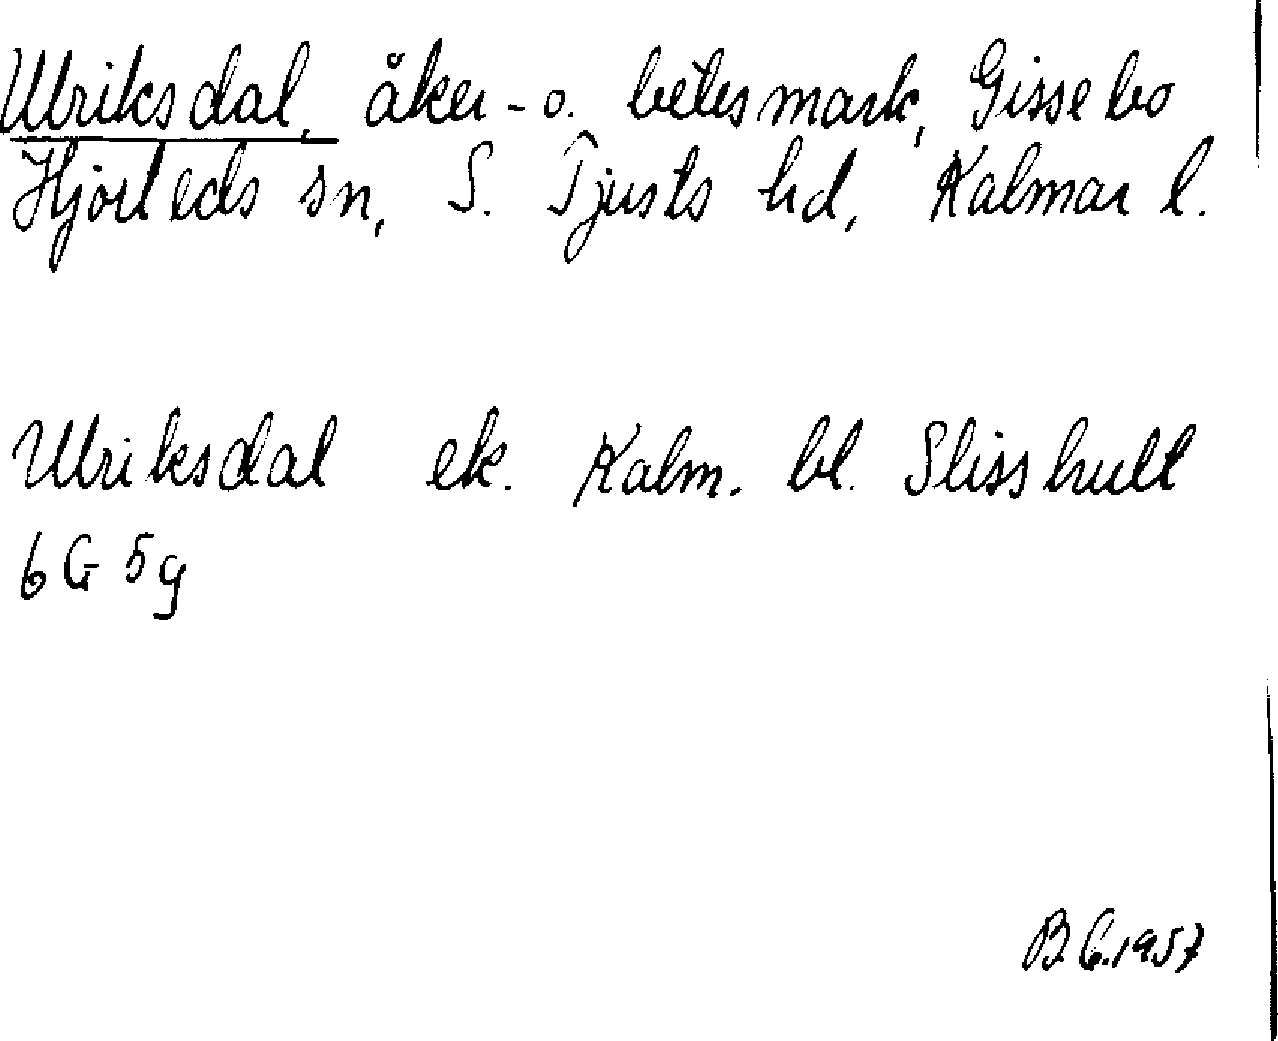 Ulriksdal, åker- o. betesmark, Gissebo
Hjorteds sn, S. Tjusts hd, Kalmar l.
Ulriksdal ek. Kalm. bl. Slisshult
6G 5g
B.G. 1957